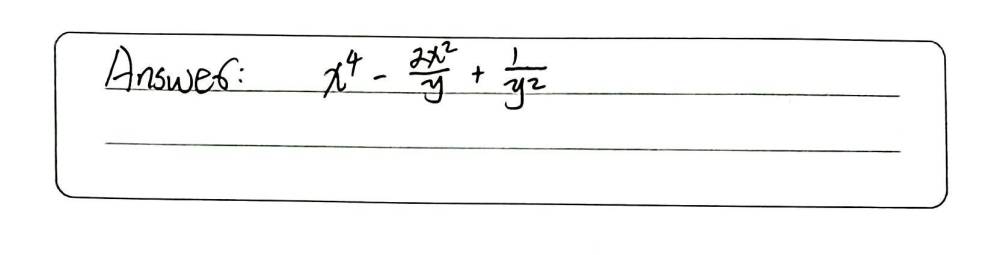 Answer: x⁴ - 2x²/y + 1/y²